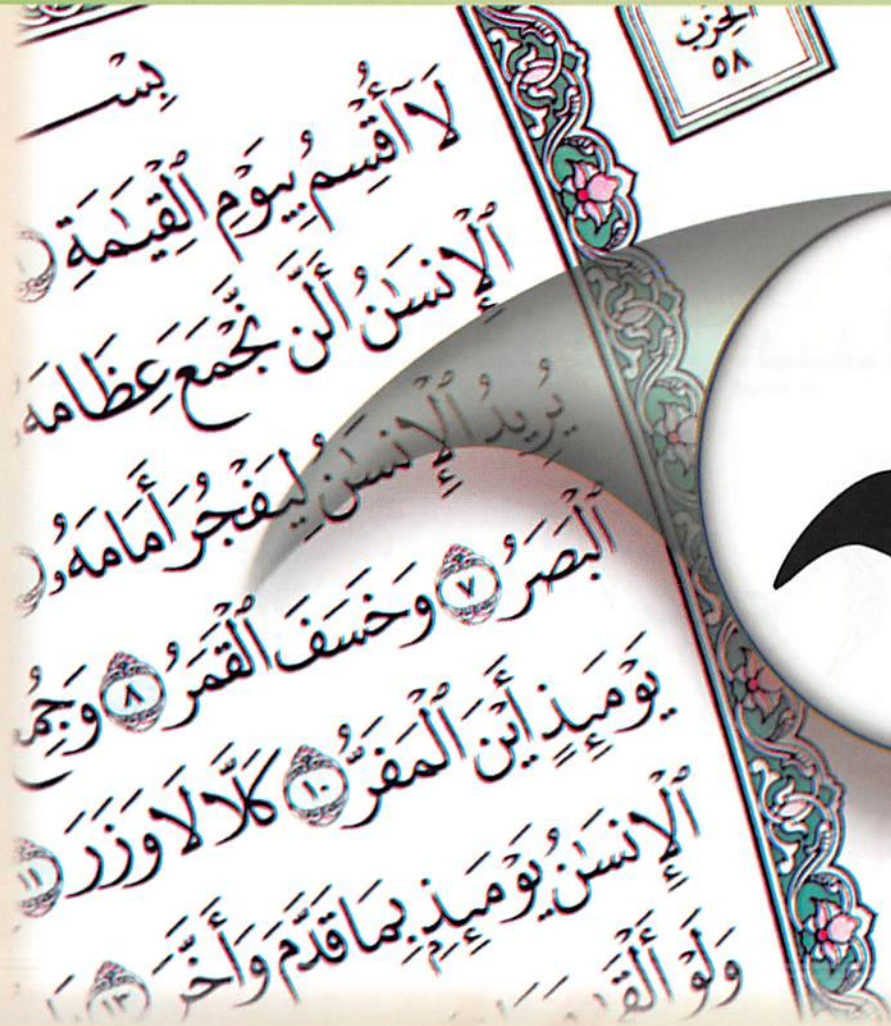 الحزب
٥٨
بسـ
لَآ أُقْسِمُ بِيَوْمِ ٱلْقِيَٰمَةِ ١
ٱلْإِنسَٰنُ أَلَّن نَّجْمَعَ عِظَامَهُۥ
يُرِيدُ ٱلْإِنسَٰنُ لِيَفْجُرَ أَمَامَهُۥ
ٱلْبَصَرُ ٧ وَخَسَفَ ٱلْقَمَرُ ٨ وَجُمِعَ
يَوْمَئِذٍ أَيْنَ ٱلْمَفَرُّ ١٠ كَلَّا لَا وَزَرَ ١١
ٱلْإِنسَٰنُ يَوْمَئِذٍۭ بِمَا قَدَّمَ وَأَخَّرَ ١٣
وَلَوْ أَلْقَىٰ